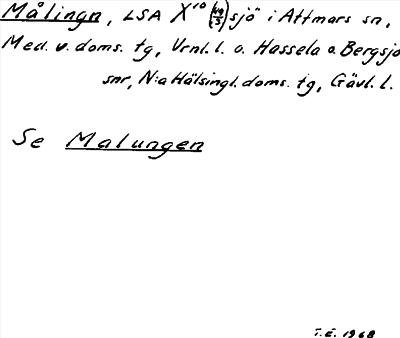 Målingn, LSA X¹⁰ (49/3) sjö i Attmars sn,
Med. v. doms. tg, Vrnl. l. o. Hassela o. Bergsjö
snr, N:a Hälsingl. doms. tg, Gävl. l.
Se Malungen
T.E. 1968